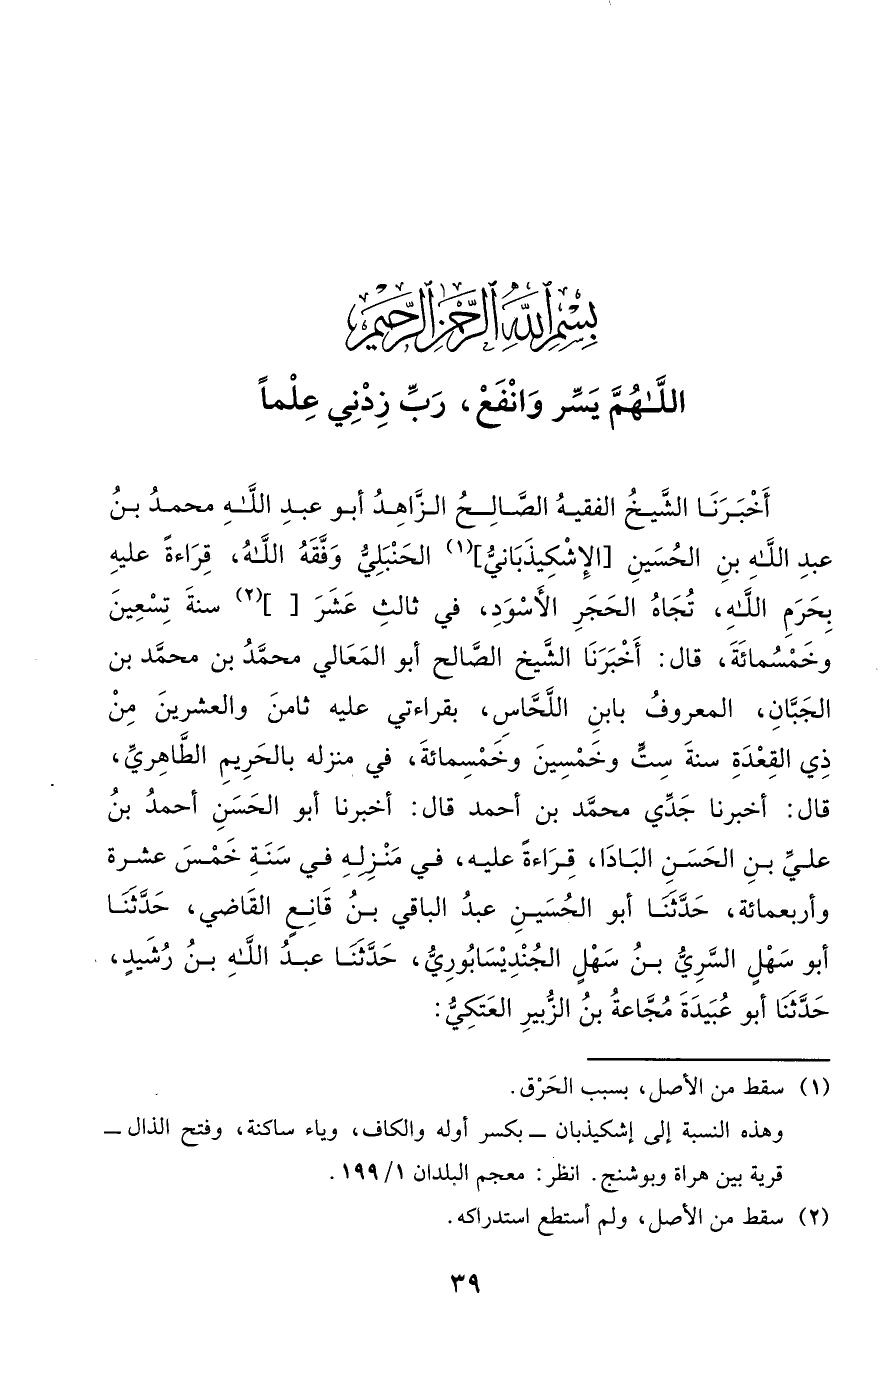 بِسْمِ اللَّهِ الرَّحْمَنِ الرَّحِيمِ
اللَّـٰهُمَّ يَسِّر وَانْفَعْ، رَبِّ زِدْنِي عِلْماً
أَخْبَـرَنَـا الشَّيـخُ الفقيـهُ الصَّـالِــحُ الـزَّاهِـدُ أبـو عبـدِ اللَّـٰـهِ محمـدُ بـنُ
عبدِ اللَّـٰهِ بنِ الحُسَينِ [الإِشْكِيذَبَانيُّ](١) الحَنْبَلِيُّ وَفَّقَهُ اللَّـٰهُ، قِرَاءةً عليهِ
بِحَرَمِ اللَّـٰهِ، تُجَاهُ الحَجَرِ الأَسْوَدِ، في ثالثِ عَشَرَ [ ](٢) سنةَ تِسْعِينَ
وخَمْسُمائَةَ، قال: أَخْبَرَنَا الشَّيخ الصَّالح أبو المَعَالي محمَّدُ بن محمَّد بن
الجَبَّانِ، المعروفُ بابنِ اللَّحَّاسِ، بقراءتي عليه ثامنَ والعشرينَ مِنْ
ذِي القِعْدَةِ سنةَ سِتٍّ وخَمْسِينَ وخَمْسِمائةَ، في منزله بالحَرِيمِ الطَّاهِريِّ،
قال: أخبرنا جَدِّي محمَّد بن أحمد قال: أخبرنا أبو الحَسَنِ أحمدُ بنُ
علـيِّ بـنِ الحَسَـنِ البَـادَا، قِـرَاءةً عليـه، فـي مَنْـزِلِـهِ فـي سَنَـةِ خَمْـسَ عشـرة
وأربعمائة، حَدَّثَنَـا أبو الحُسَيـنِ عبدُ الباقي بـنُ قَانِـعٍ القَاضي، حَدَّثَنَـا
أبو سَهْلٍ السَّرِيُّ بـنُ سَهْلٍ الجُنْدِيْسَابُورِيُّ، حَدَّثَنَـا عبـدُ اللَّـٰهِ بـنُ رُشَيدٍ،
حَدَّثَنَا أبو عُبَيدَةَ مُجَّاعةُ بنُ الزُّبيرِ العَتَكِيُّ:
(١) سقط من الأصل، بسبب الحَرْق.
وهذه النسبة إلى إشكيذبان ــ بكسر أوله والكاف، وياء ساكنة، وفتح الذال ــ
قرية بين هراة وبوشنج. انظر: معجم البلدان ١/ ١٩٩.
(٢) سقط من الأصل، ولم أستطع استدراكه.
٣٩